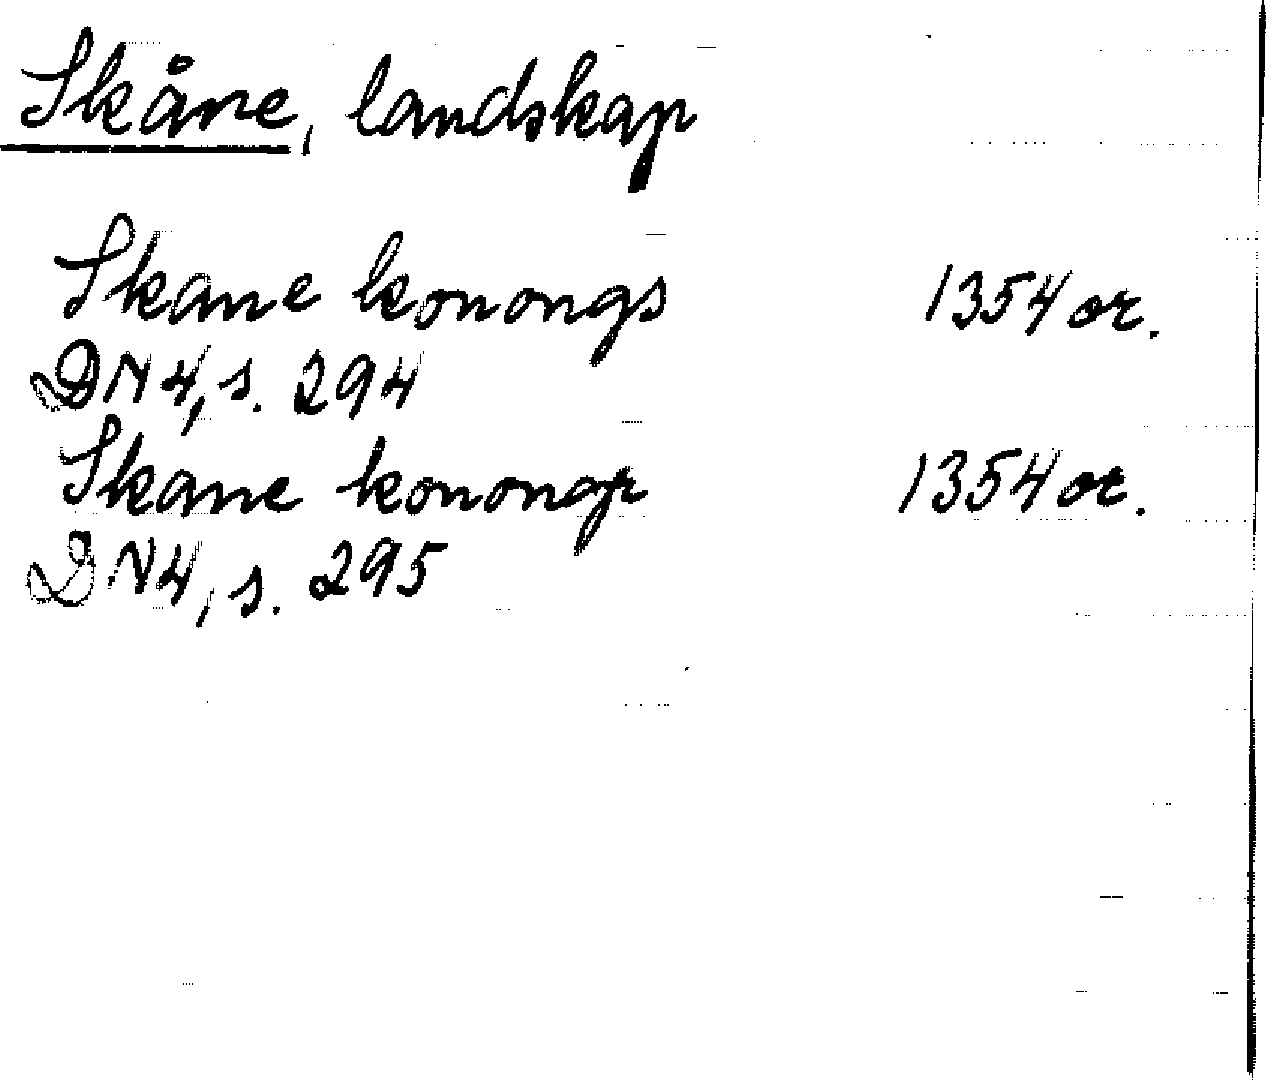 Skåne, landskap
Skane konongs 1354 or.
DN 4, s. 294
Skane konongr 1354 or.
DN 4, s. 295